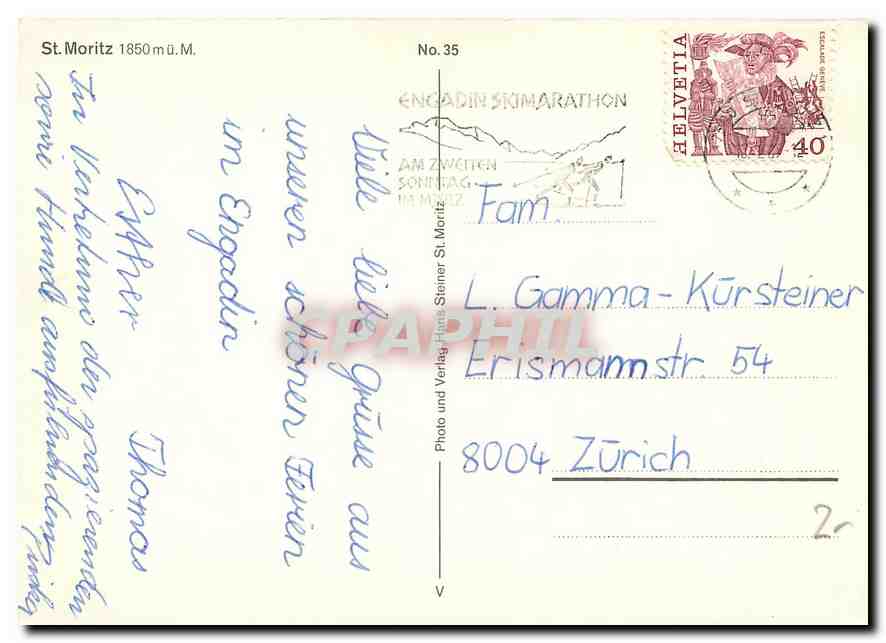 St. Moritz 1850 m ü. M.
No. 35
ENGADIN SKIMARATHON
AM ZWEITEN
SONNTAG
IM MÄRZ
HELVETIA
ESCALADE GENÈVE
40
Viele liebe Grüsse aus
unseren schönen Ferien
im Engadin
Esther Thomas
In Vertretung der spazierenden
sowie Hunde ausführenden
Photo und Verlag Hans Steiner St. Moritz
V
Fam.
L. Gamma-Kürsteiner
Erismannstr. 54
8004 Zürich
2.-
CPAPHIL